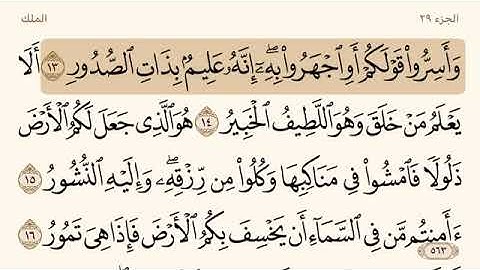 الجزء ٢٩ الملك
وَأَسِرُّوا۟ قَوْلَكُمْ أَوِ ٱجْهَرُوا۟ بِهِۦٓ ۖ إِنَّهُۥ عَلِيمٌۢ بِذَاتِ ٱلصُّدُورِ ١٣ أَلَا
يَعْلَمُ مَنْ خَلَقَ وَهُوَ ٱللَّطِيفُ ٱلْخَبِيرُ ١٤ هُوَ ٱلَّذِى جَعَلَ لَكُمُ ٱلْأَرْضَ
ذَلُولًا فَٱمْشُوا۟ فِى مَنَاكِبِهَا وَكُلُوا۟ مِن رِّزْقِهِۦ ۖ وَإِلَيْهِ ٱلنُّشُورُ ١٥
ءَأَمِنتُم مَّن فِى ٱلسَّمَآءِ أَن يَخْسِفَ بِكُمُ ٱلْأَرْضَ فَإِذَا هِىَ تَمُورُ ١٦
٥٦٣